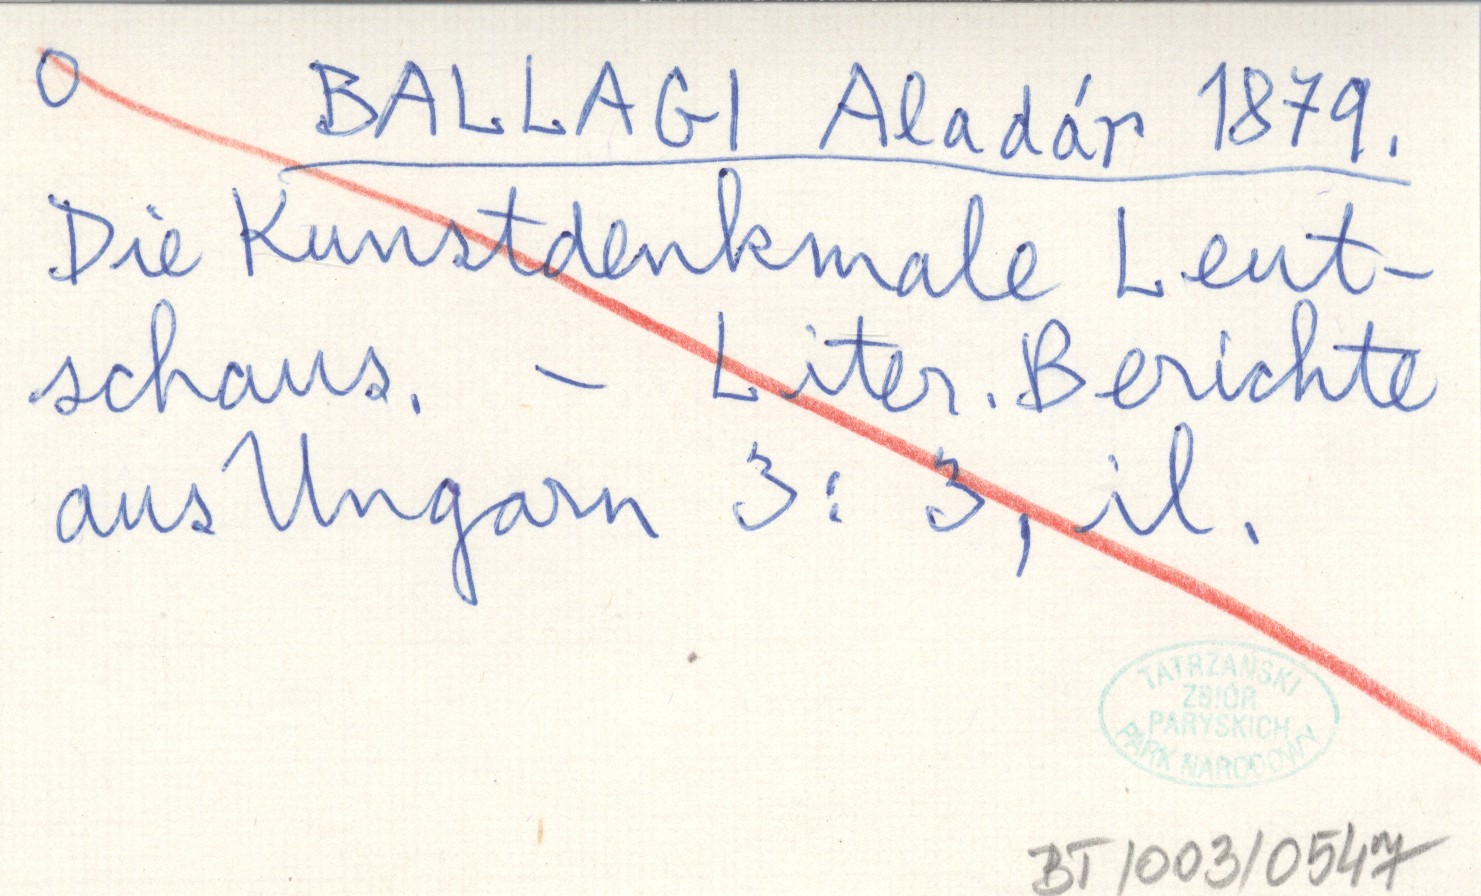 O BALLAGI Aladár 1879.
Die Kunstdenkmale Leut-
schaus. - Liter. Berichte
aus Ungarn 3: 3, il.
TATRZAŃSKI
ZBIÓR
PARYSKICH
PARK NARODOWY
BT/003/0547